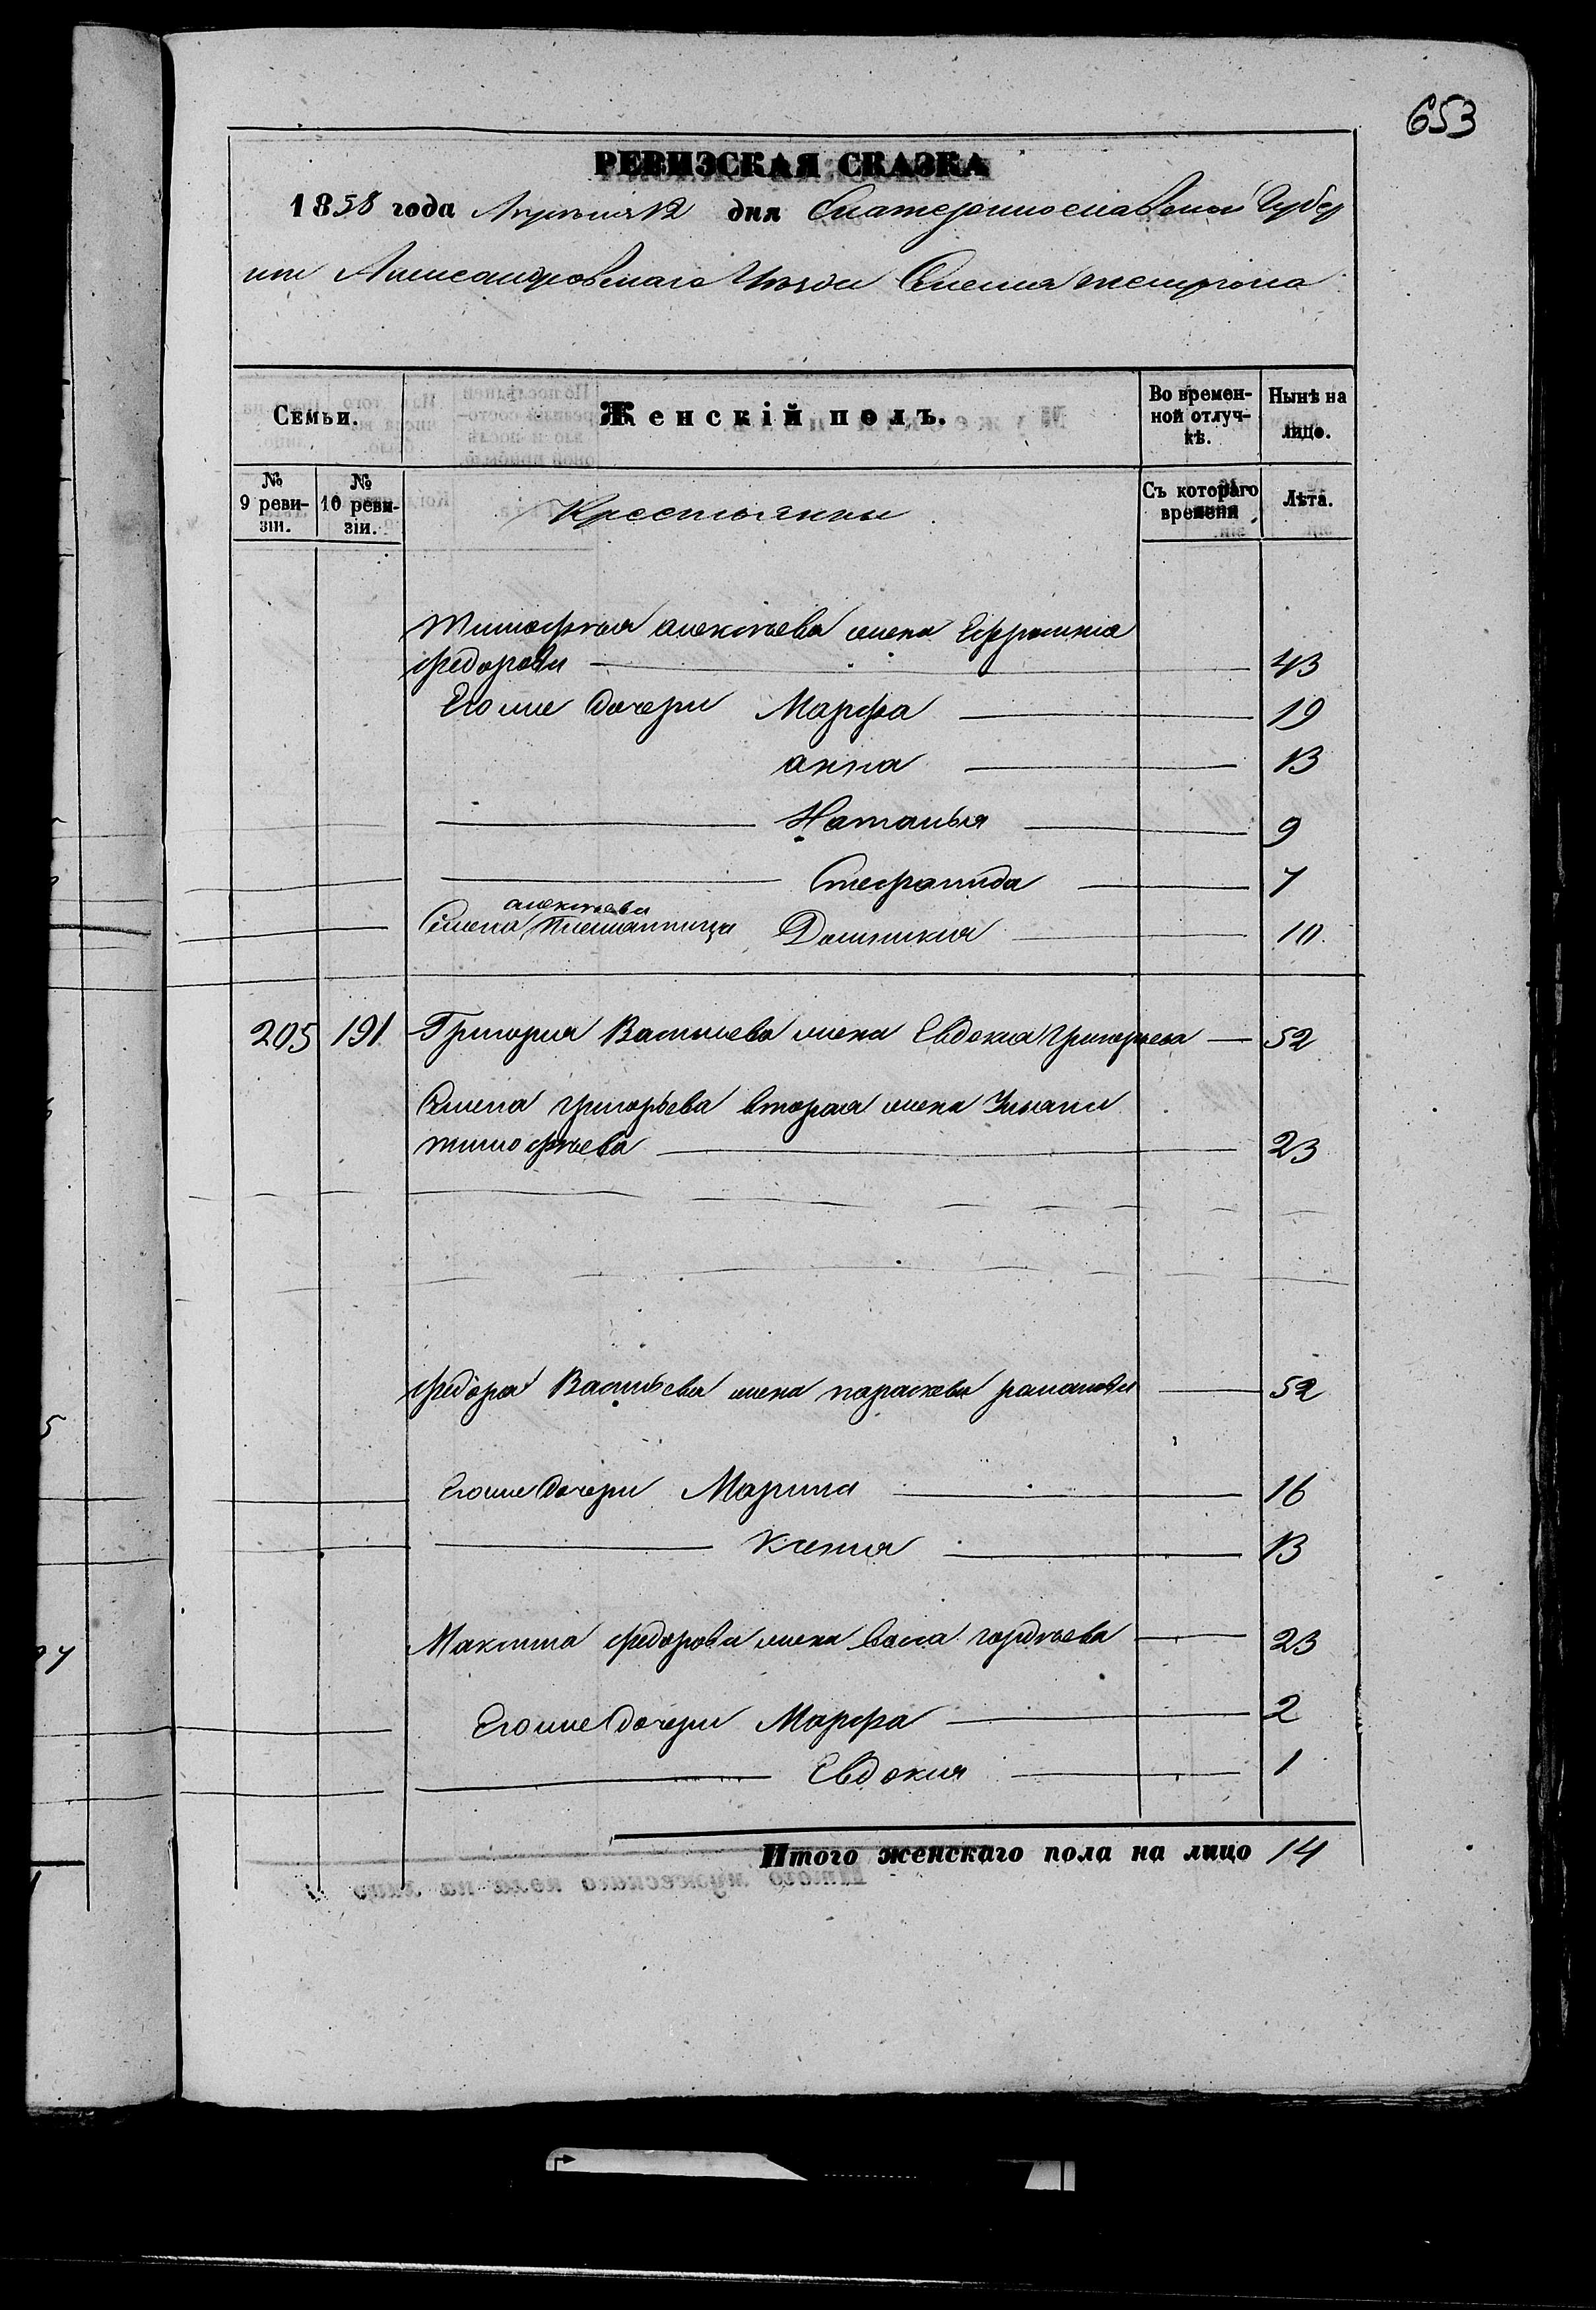 653
РЕВИЗСКАЯ СКАЗКА
1858 года Апреля 12 дня Екатеринославской Губер
нии Александровскаго Уезда Селения
Семьи.
Женскій полъ.
Во времен-
ной отлуч-
кѣ.
Нынѣ на
лицо.
№
9 реви-
зіи.
№
10 реви-
зіи.
Крестьянки
Съ котораго
времени
Лѣта.
Тимофея алексѣева жена Ефросинья
федорова 43
Его же дочери Марфа 19
анна 13
Наталья 9
Стефанида 7
алексѣева
Семена Племянница Домникия 10
205 191 Григория Васильева жена Евдокия григорьева 52
Семена григорьева вторая жена Ульяна
тимофѣева 23
федора Васильева жена параскева романова 52
Его же дочери Марина 16
Ксения 13
Максима федорова жена васса гордѣева 23
Его же дочери Марфа 2
Евдокия 1
Итого женскаго пола на лицо 14